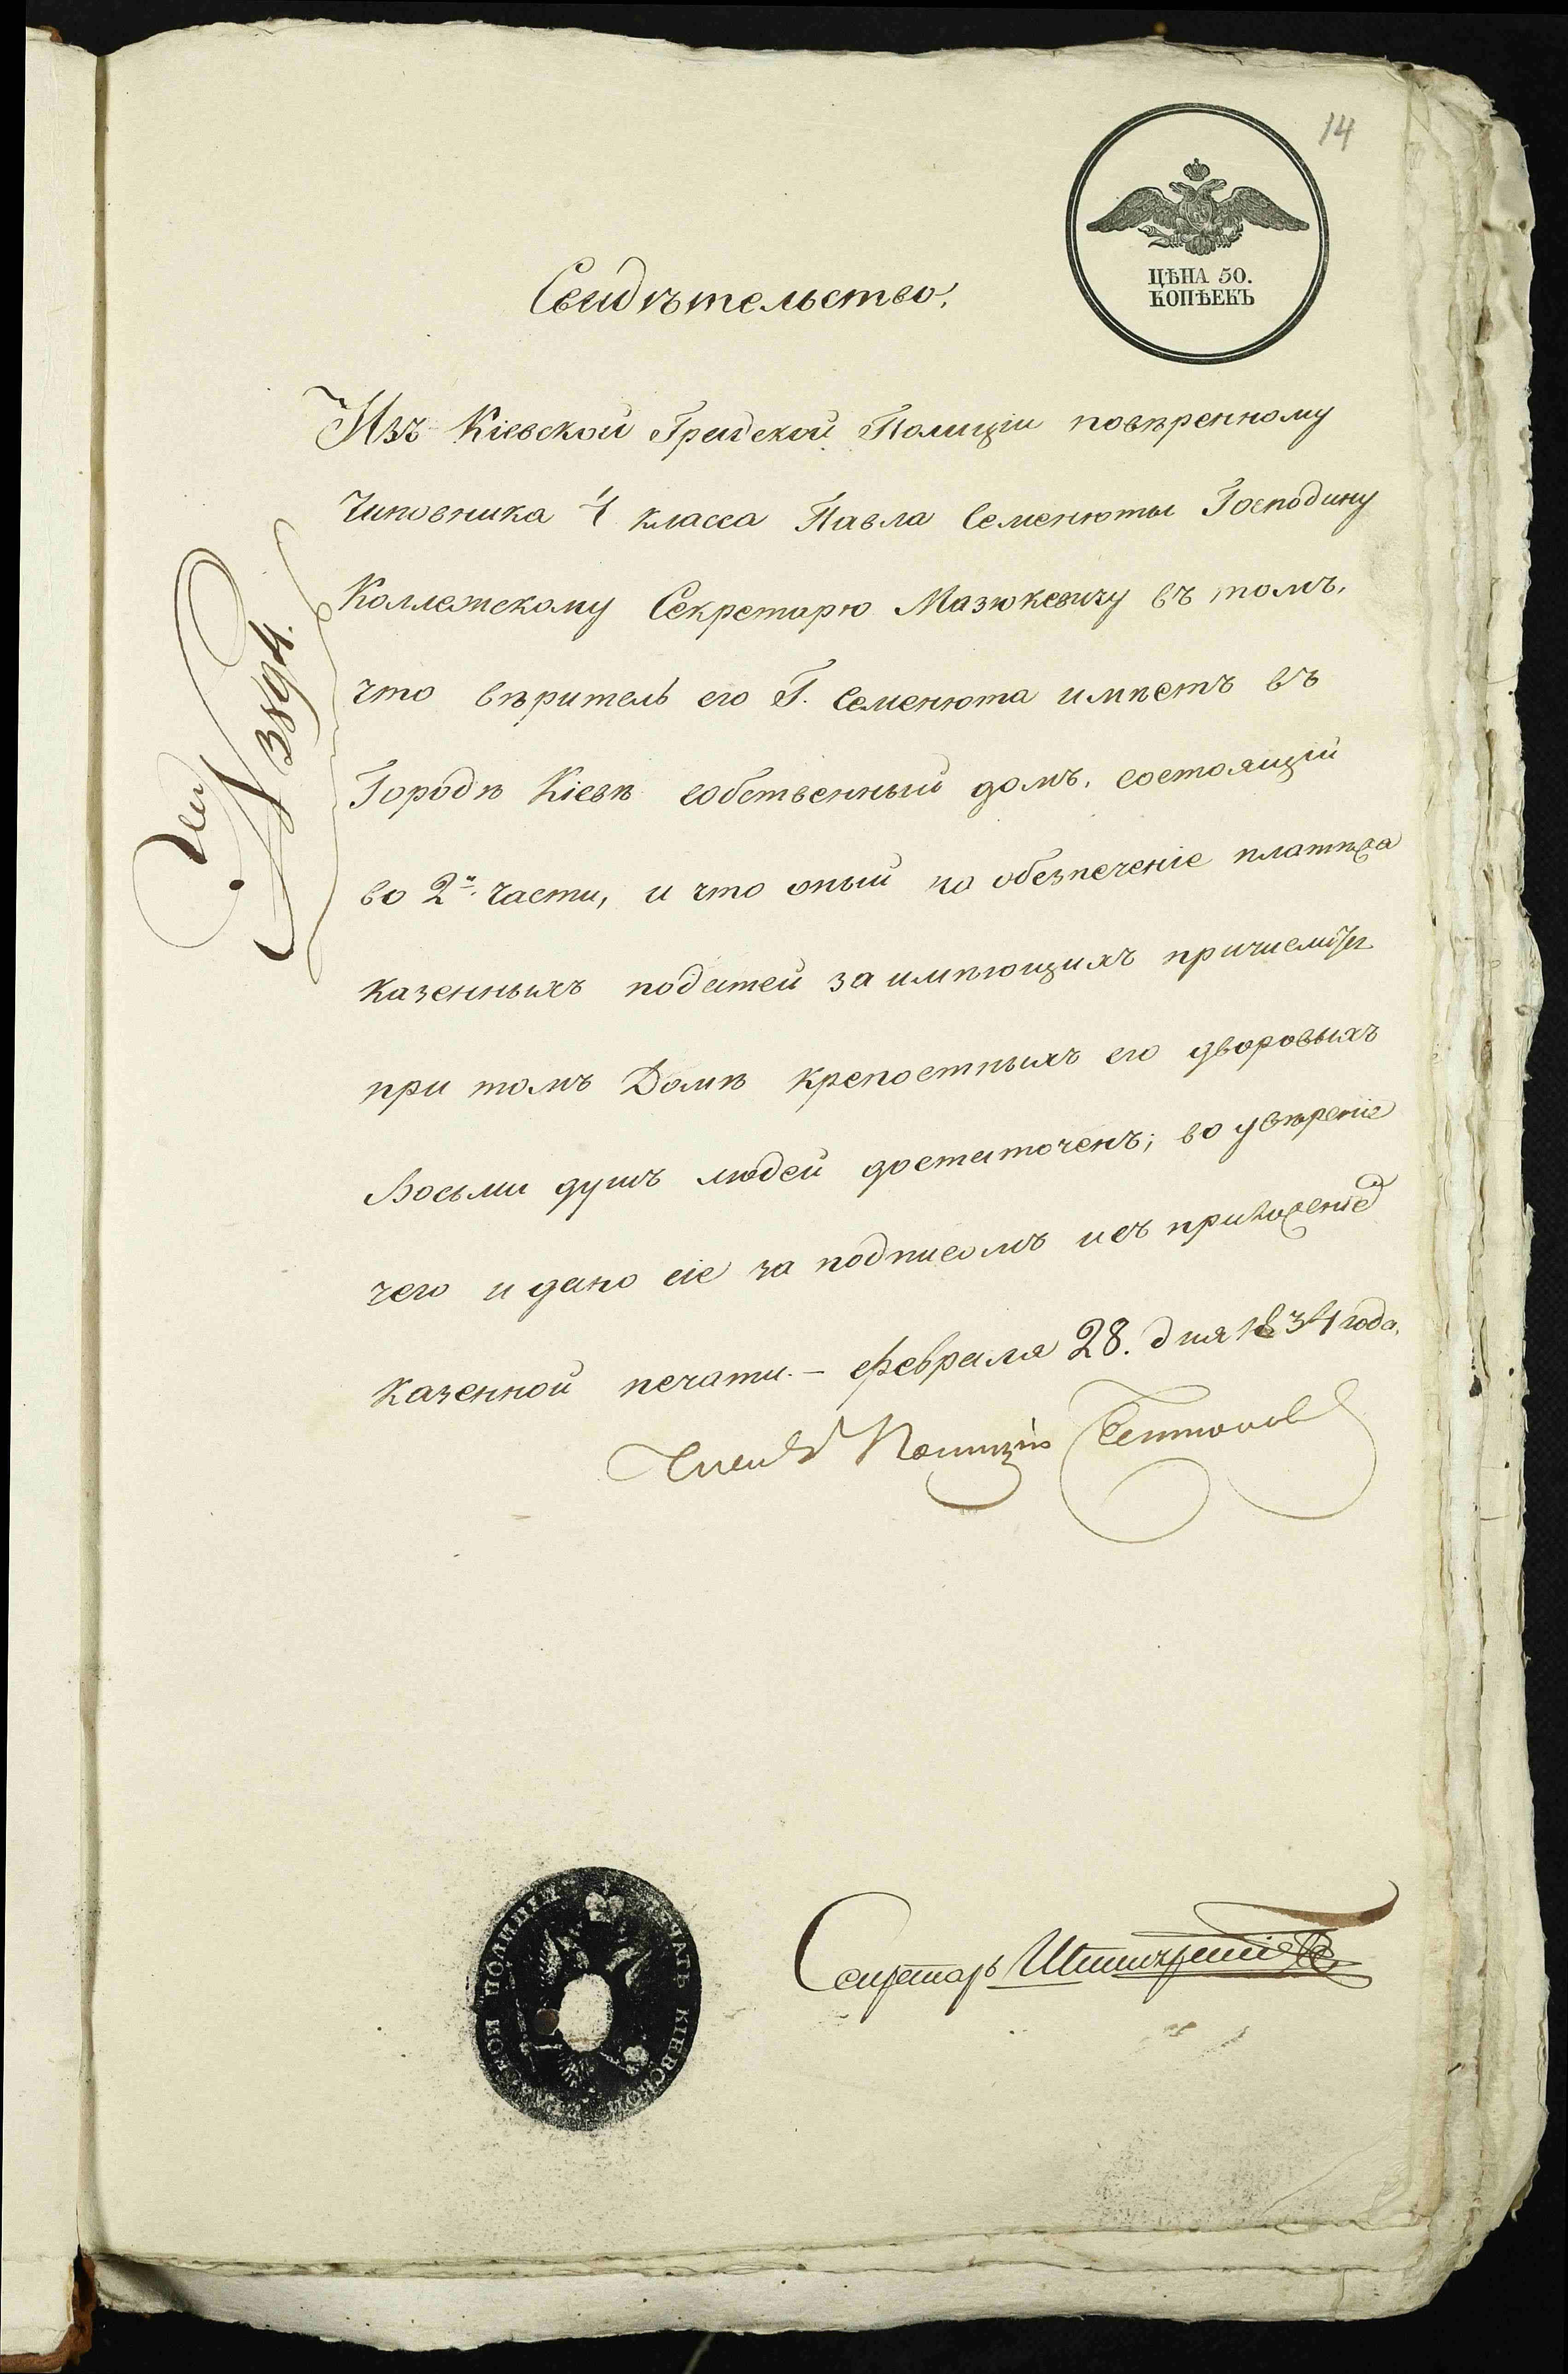 14
ЦѢНА 50.
КОПѢЕКЪ
Свидѣтельство.
Изъ Кіевской Градской Полиціи повѣренному
Чиновника 4 класса Павла Семенюты Господину
Коллежскому Секретарю Мазюкевичу въ томъ,
что вѣритель его Г. Семенюта имѣетъ въ
Городѣ Кіевѣ собственный домъ, состоящій
во 2й. Части, и что оный на обезпеченіе платежа
казенныхъ податей за имѣющихъ причислится
при томъ Домѣ крепостныхъ его дворовыхъ
Восьми душъ людей достаточенъ; во увѣреніе
чего и дано сіе за подписомъ и съ приложеніе
Казенной печати. – Февраля 28. дня 1834 года.
Членъ Полиціи
№ 3894.
Секретарь
ПЕЧАТЬ КІЕВСКОЙ ПОЛИЦІИ